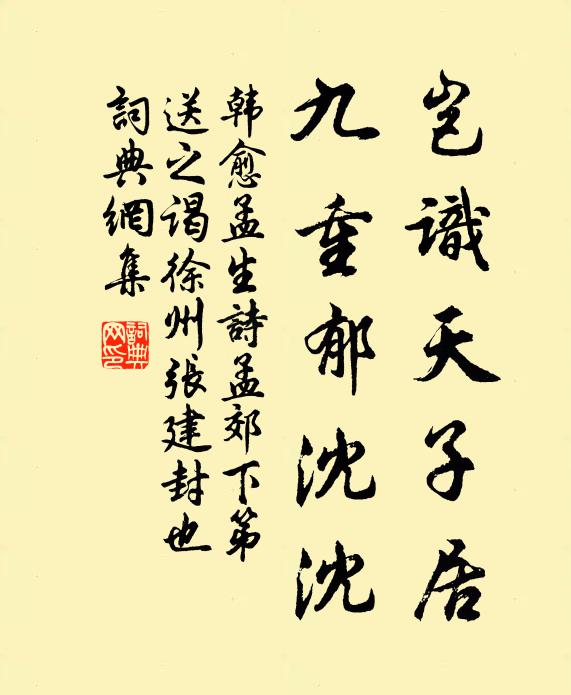 岂識天子居
九重郁沈沈
韩愈孟生詩孟郊下第
送之谒徐州張建封也
詞典網集
詞典
网印